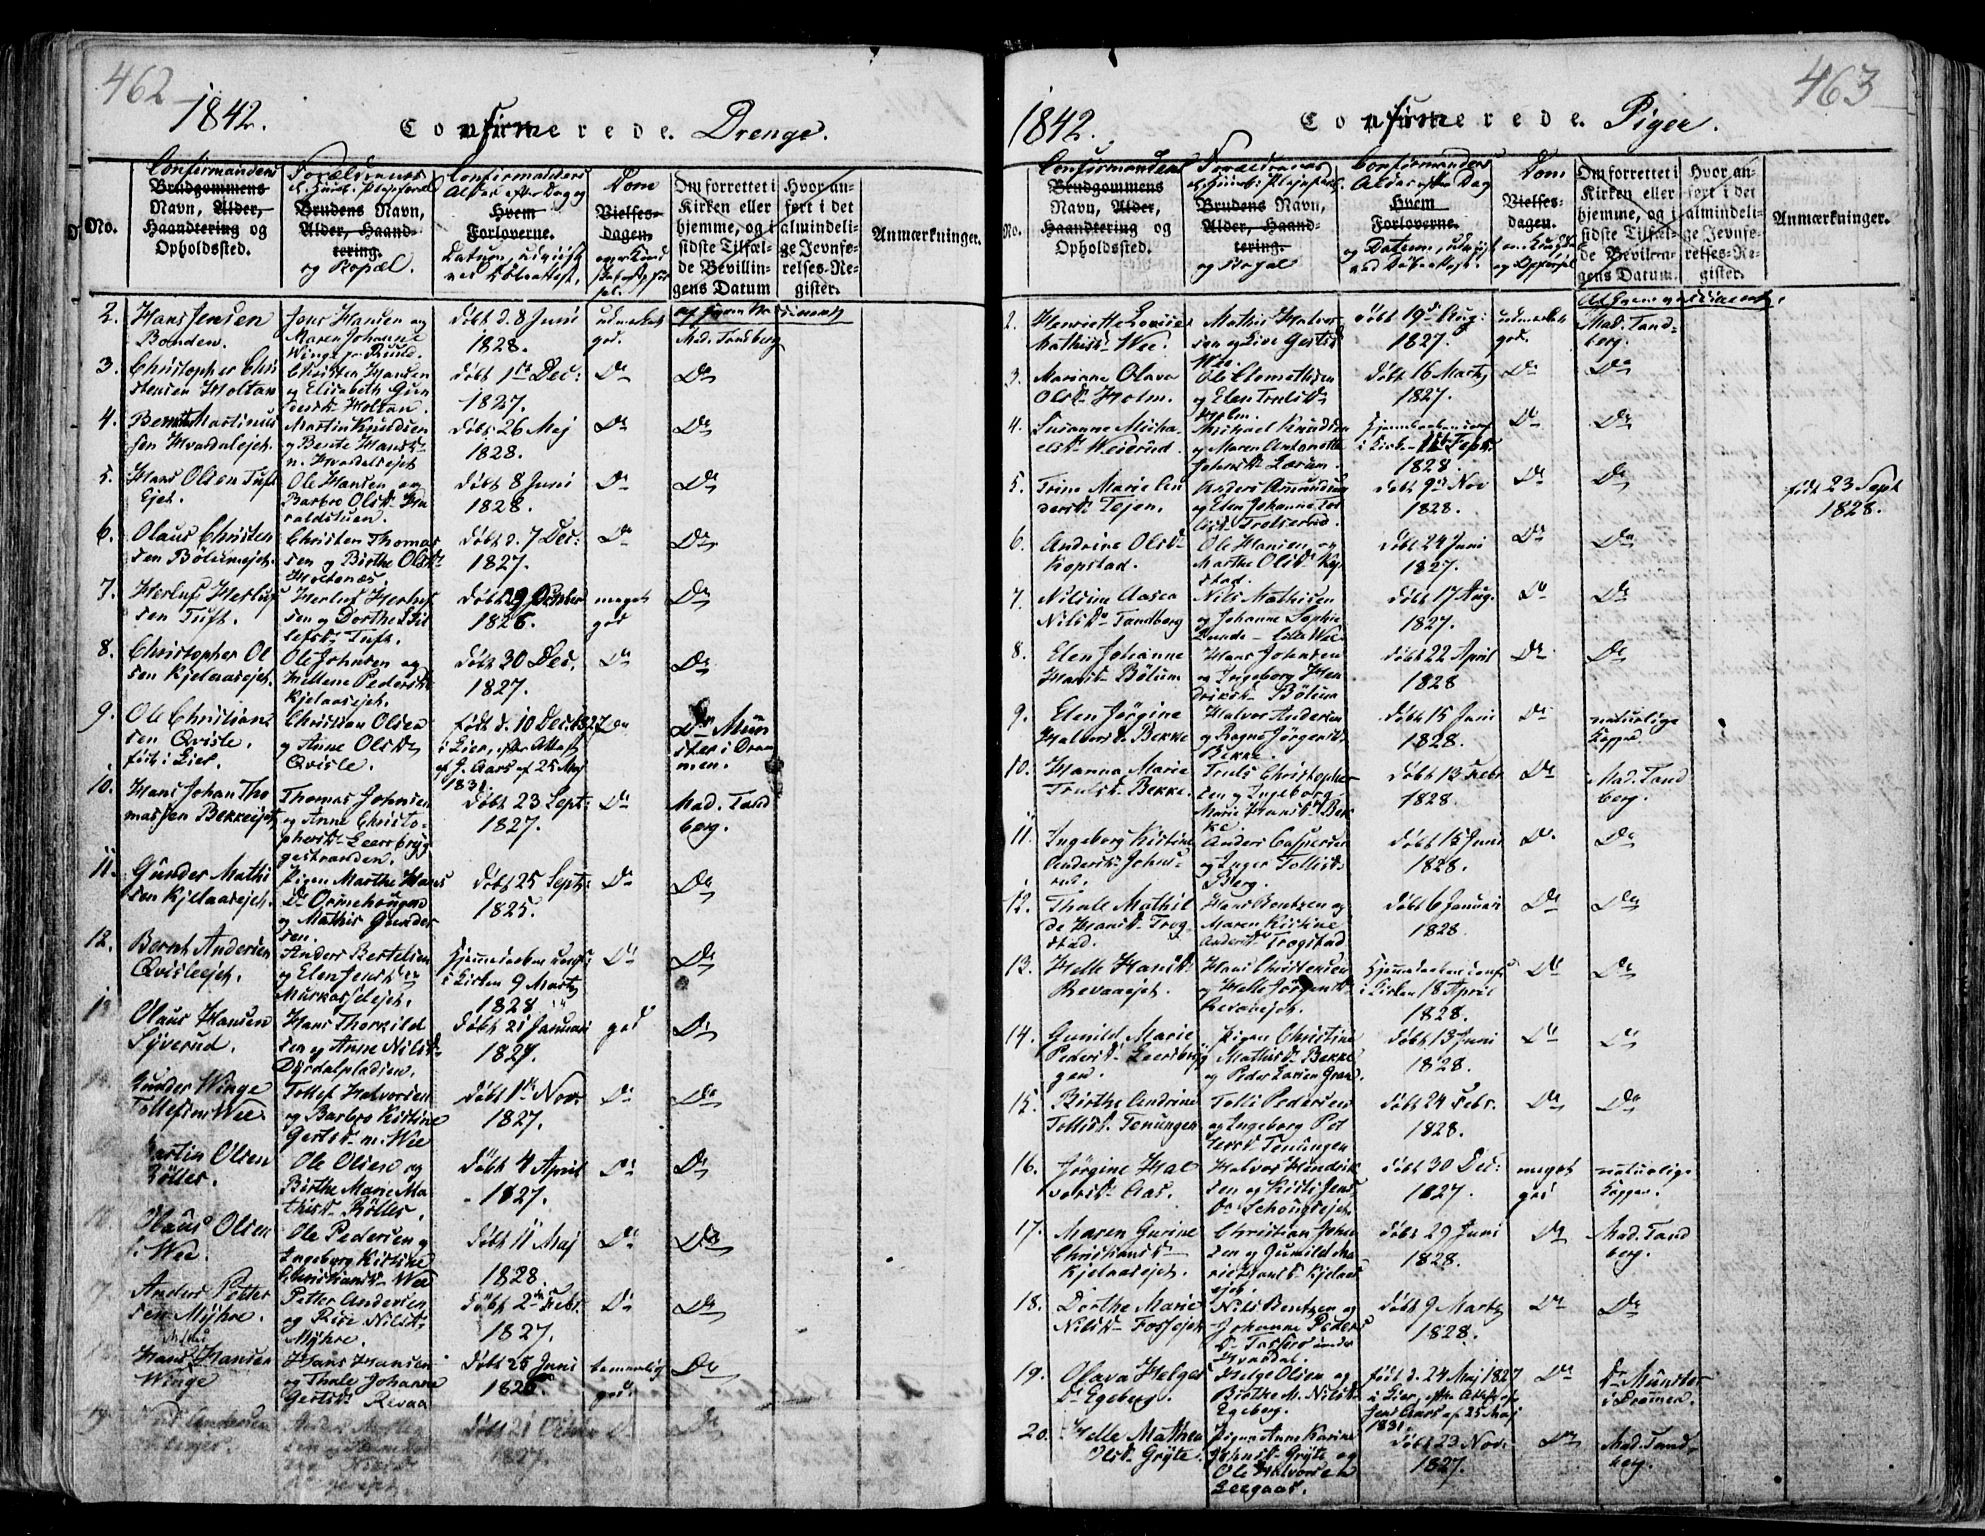 462
1842.
Confirmerede. Drenge.
No.
Confirmandens
Brudgommens
Navn, Alder,
Haandtering og
Opholdssted.
Forældrenes
Brudens Navn,
Alder, Haand-
tering.
og Bopæl.
Confirmandens
Alder efter Dag og
Hvem
Forloverne.
Datum, udviist
ved Døbeattest.
Dom
Vielses-
dagen.
Om forrettet i
Kirken eller
hjemme, og i
sidste Tilfæl-
de Bevillin-
gens Datum
Hvor an-
ført i det
almindeli-
ge Jevnfø-
relses-Re-
gister.
Anmærkninger.
2. Hans Jensen
Bonden.
Jens Hansen og
Maren Johanne
Winge
døbt d. 8 Juni
1828.
udmærket
god.
Mad. Tandberg
3. Christopher Chri
stensen Holtan
Christen Hansen
og Elisabeth Gun
dersd. Holtan.
døbt 1ste Dec:
1827.
Do
Do
4. Bernt Martinius
sen Hvardalsejet.
Martin Knudsen
og Bente Hansd.
n. Hvardalsejet
døbt 26 Maj
1828.
Do
Do
5. Hans Olsen Tuft
Ejet.
Ole Hansen og
Barbro Olsd. Ha
raldstuen.
døbt 8 Juni
1828.
Do
Do
6. Olaus Christen
sen Bölumejet.
Christen Thomas
sen og Birthe Olsd.
Holtenæs.
døbt d. 7 Dec:
1827.
Do
Do
7. Herlus Herlus
sen Tuft.
Herlus Herlus
sen og Dorthe El
lefsd. Tuft.
1826.
meget
god
Do
8. Christopher Ol
sen Kjelaasejet.
Ole Johnsen og
Hellene Pedersd.
Kjelaasejet.
døbt 30 Dec.
1827.
Do
Do
9. Ole Christian
sen Qvisle.
født i Lier.
Christian Olsen
og Anne Olsd.
Qvisle.
født d. 10 Dec. 1827
i Lier, efter Attest
af G. Aars af 25 Maj
1831.
Do
Dr Mün
ster i Dram
men.
10. Hans Johan Tho
massen Bekkeejet
Thomas Johnsen
og Anne Christo-
phersd. Leersbryg
gestranden.
døbt 23 Sept:
1827.
Do
Mad. Tand
berg.
11. Gunder Mathi
sen Kjelaasejet.
Pigen Marthe Hans
D. Ormehougen
og Mathis Gunder
sen.
døbt 25 Sept:
1825.
Do
Do
12. Bernt Andersen
Qvisleejet.
Anders Bertelsen
og Elen Jensd.
Murkasselejet.
Hjemmedøben conf:
i Kirken 9 Marts
1828
Do
Do
13 Olaus Hansen
Syverud.
Hans Thorkild
sen og Anne Nilsd.
Dyrdalpladsen.
døbt 21 Januari
1827.
god
Do
Gunder Winge
Tollefsen Wee.
Tollef Halvorsen
og Barbro Kistine
Gertsd. n. Wee
døbt 1te Nov.
1827.
Do
Do
Martin Olsen
Röller.
Ole Olsen og
Birthe Marie Ma
thisd. Röller.
døbt 4 April
1827.
Do
Do
Olaus Olsen
Wee.
Ole Pedersen og
Ingeborg Kistine
Christiansd. Wee
døbt 11 Maj
1828.
Do
Do
17. Anders Petter
sen Myhre.
Petter Andersen
og Rise Nilsd.
Myhre.
døbt 2den Febr.
1827.
Do
Do
Hans Hansen
Winge
Hans Hansen
og Thale Johanne
Gertsd. Revaa
døbt 25 Juni
1826
temmelig
god.
Do
19. Andersen
døbt 21 October
1827.
Do
Do
463
1842.
Confirmerede. Piger.
No.
Confirmandens
Brudgommens
Navn, Alder,
Haandtering og
Opholdssted.
Forældrenes
Brudens Navn,
Alder, Haand-
tering.
og Bopæl
Confirmandens
Alder efter Dag
Hvem
Forloverne.
og Datum, udviist
ved Døbeattest.
Dom
Vielses-
dagen.
Om forrettet i
Kirken eller
hjemme, og i
sidste Tilfæl-
de Bevillin-
gens Datum.
Hvor an-
ført i det
almindeli-
ge Jevnfø-
relses-Re-
gister.
Anmærkninger.
2. Henriette Lovise
Mathisd. Wee.
Mathis Halvor
sen og Live Gertsd.
Wee
døbt 19de Aug:
1827.
udmærket
god.
Mad. Tand-
berg.
3. Mariane Olava
Olsd. Holm.
Ole Clemethsen
og Elen Trulsd.
Holm.
døbt 16 Marts
1827.
Do
Do
4. Susanne Micha
elsd. Weierud.
Michael Knudsen
og Maren Antonette
Johnsd. Lærum.
Hjemmedøben conf
i Kirken Sept.
1828.
Do
Do
5. Trine Marie An
dersd. Tejen.
Anders Amundsen
og Elen Johanne Tol
Trelserud.
døbt 9de Nov
1828.
Do
Do
født 23 Sept
1828.
6. Andrine Olsd.
Kopstad.
Ole Hansen og
Marthe Olsd. Kop
stad.
døbt 24 Juni
1827.
Do
Do
7. Nilsine Aasea
Nilsd. Tandberg
Nils Mathisen
og Johanne Sophie
Lunde - Wee
døbt 17 Aug.
1827.
Do
Do
8. Elen Johanne
Hansd. Bölum
Hans Johnsen
og Ingeborg Hen
driksd. Bölum
døbt 22 April
1828
Do
Do
9. Elen Jørgine
Halvorsd. Bekke
Halvor Andersen
og Ragne Jørgensd.
Bekke.
døbt 15 Juni
1828.
Do
naturlige
Kopper
10. Hanna Marie
Trulsd. Bekke.
Truls Christopher
sen og Ingeborg
Marie Hansd. Bek
ke.
døbt 13 Febr
1828.
Do
Mad. Tand
berg.
11. Ingeborg Kistine
Andersd. Johns-
rud.
Anders Caspersen
og Inger Tollisd.
Berg.
døbt 15 Juni
1828.
Do
Do
12. Thale Mathil
de Hansd. Trog
stad.
Hans Bentzen og
Maren Kistine
Andersd. Trogstad
døbt 6 Januari
1828.
Do
Do
13. Helle Hansd.
Revaaejet.
Hans Christensen
og Helle Jørgensd.
Revaaejet.
Hjemmedøben conf
i Kirken 18 April
1828.
Do
Do
14. Gunild Marie
Pedersd. Leersberg
gen.
Pigen Christine
Mathisd. Bekke
og Peder Larsen Gran.
døbt 13 Juni
1828.
Do
Do
15. Birthe Andrine
Tollisd. Fenungen
Tolli Pedersen
og Ingeborg Pet
tersd. Fenungen
døbt 24 Febr.
1828.
Do
Do
16. Jørgine Hal
vorsd. Aas.
Halvor Hendrik
sen og Kisti Jens
D. Schougsejet.
døbt 30 Dec:
1827.
meget
god
naturlige
Kopper.
17. Maren Gurine
Christiansd.
Kjelaasejet.
Christian John
sen og Gunild Ma
rie Hansd. Kjelaas
ejet.
døbt 29 Juni
1828.
Do
Mad. Tand
berg.
18. Dorthe Marie
Nilsd. Fossejet
Nils Bentzen og
Johanne Peders
D.
Hvardal.
døbt 9 Marts
1828.
Do
Do
19. Olava Helges
D. Egeberg.
Helge Olsen og
Birthe M. Nilsd.
Egeberg.
født d. 24 Maj 1827
i Lier, efter Attest af
Jens Aars af 25 Maj
1831.
Do
Dr Münster
i Drammen.
20. Helle Mathea
Olsd. Gryte.
Pigen Anne Karine
Johnsd. Gryte og
Ole Halvorsen
Leegaas.
døbt 23 Nov.
1827.
Do
Mad. Tand-
berg.